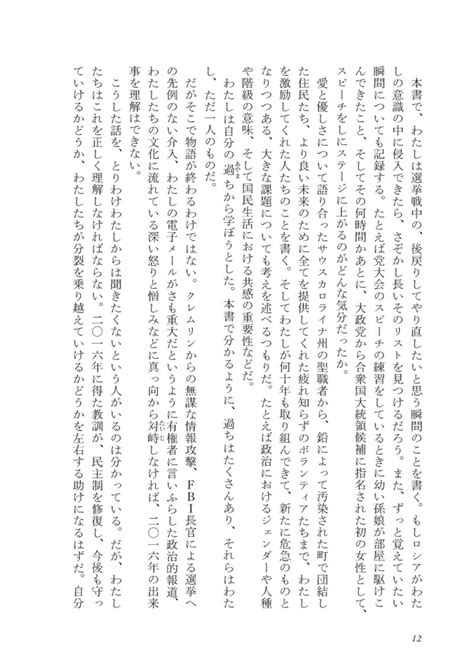 本書で、わたしは選挙戦中の、後戻りしてやり直したいと思う瞬間のことを書く。もしロシアがわた
しの意識の中に侵入できたら、さぞかし長いそのリストを見つけるだろう。また、ずっと覚えていたい
瞬間についても記録する。たとえば党大会のスピーチの練習をしているときに幼い孫娘が部屋に駆けこ
んできたこと、そしてその何時間かあとに、大政党から合衆国大統領候補に指名された初の女性として、
スピーチをしにステージに上がるのがどんな気分だったか。
愛と優しさについて語り合ったサウスカロライナ州の聖職者から、鉛によって汚染された町で団結し
た住民たち、より良い未来のために全てを提供してくれた疲れ知らずのボランティアたちまで、わたし
を激励してくれた人たちのことを書く。そしてわたしが何十年も取り組んできて、新たに危急のものと
なりつつある、大きな課題についても考えを述べるつもりだ。たとえば政治におけるジェンダーや人種
や階級の意味、そして国民生活における共感の重要性などだ。
わたしは自分の過ちから学ぼうとした。本書で分かるように、過ちはたくさんあり、それらはわた
し、ただ一人のものだ。
だがそこで物語が終わるわけではない。クレムリンからの無謀な情報攻撃、FBI長官による選挙へ
の先例のない介入、わたしの電子メールがさも重大だというように有権者に言いふらした政治的報道、
わたしたちの文化に流れている深い怒りと憎しみなどに真っ向から対峙しなければ、二〇一六年の出来
事を理解はできない。
こうした話を、とりわけわたしからは聞きたくないという人がいるのは分かっている。だが、わたし
たちはこれを正しく理解しなければならない。二〇一六年に得た教訓が、民主制を修復し、今後も守っ
ていけるかどうか、わたしたちが分裂を乗り越えていけるかどうかを左右する助けになるはずだ。自分
12